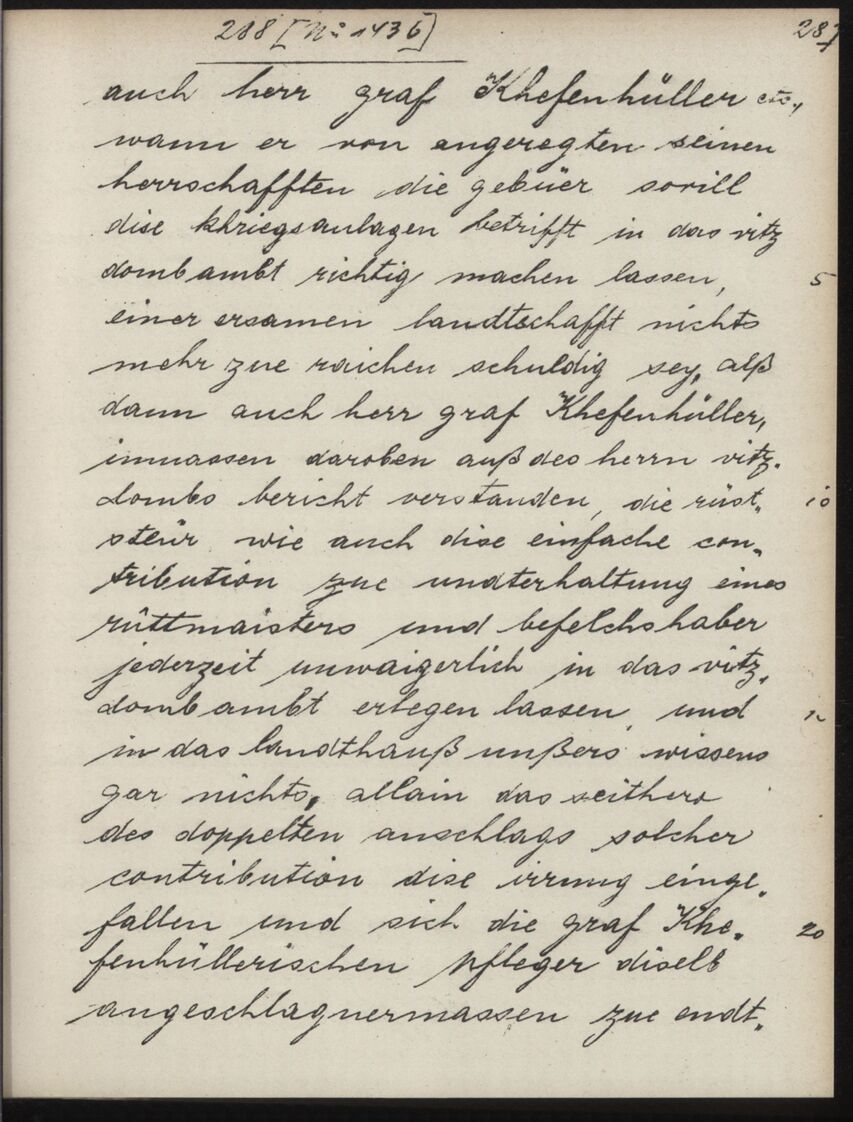 288 [No 1436] 287
auch herr graf Khefenhüller etc.,
wann er von angeregten seinen
herrschafften die gebüer sovill
dise khriegsanlagen betrifft in das vitz
dombambt richtig machen lassen, 5
einer ersamen landtschafft nichts
mehr zue raichen schuldig sey, alß
dann auch herr graf Khefenhüller,
inmassen daroben auß des herrn vitz„
dombs bericht verstanden, die rüst„ 10
steür wie auch dise einfache con„
tribution zue undterhaltung eines
rüttmaisters und befelchshaber
jederzeit unwaigerlich in das vitz„
dombambt erlegen lassen und
in das landthauß unßers wissens
gar nichts, allain das seithero
des doppelten anschlags solcher
contribution dise irrung einge„
fallen und sich die graf Khe„ 20
fenhüllerischen pfleger diselb
angeschlagnermassen zue endt„